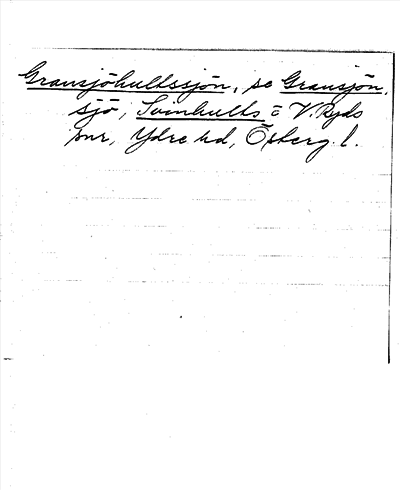 Gransjöhultssjön, se Gransjön,
sjö, Svinhults o V. Ryds
snr, Ydre hd, Österg. l.